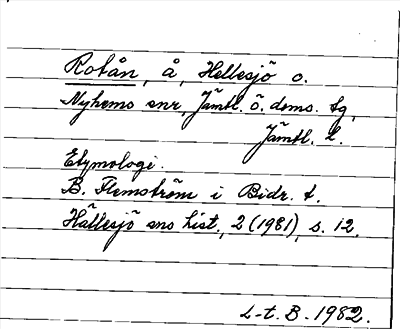 Rotån, å, Hellesjö o.
Nyhems snr, Jämtl. ö. doms. tg,
Jämtl. l.
Etymologi.
B. Flemström i Bidr. t.
Hällesjö sns hist., 2 (1981), s. 12.
L-t. B. 1982.